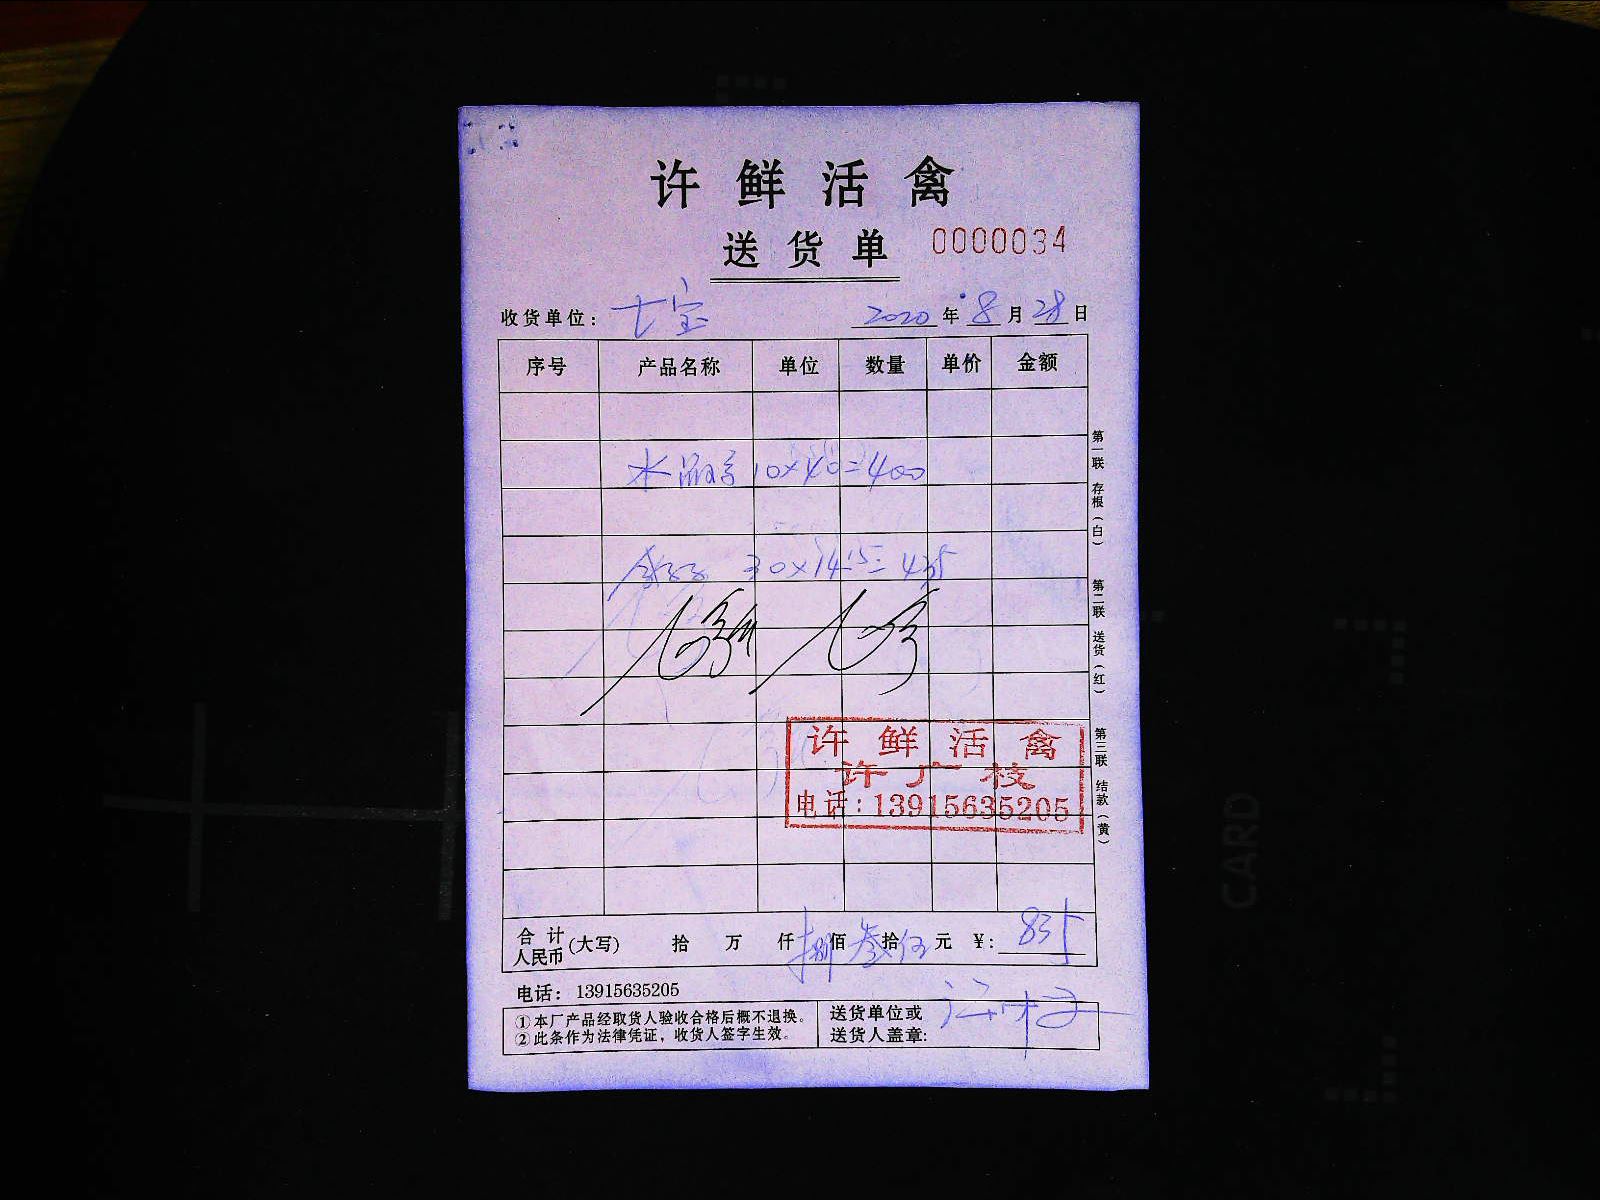 许鲜活禽
送货单 0000034
收货单位: 七宝 2020年8月28日
序号 产品名称 单位 数量 单价 金额
水 10×40=400
30×14.5=435
许鲜活禽
许广枝
电话:13915635205
合计人民币(大写) 拾 万 仟 捌佰 叁拾 伍元 ¥: 835
电话: 13915635205
①本厂产品经取货人验收合格后概不退换。
②此条作为法律凭证,收货人签字生效。
送货单位或
送货人盖章:
第一联 存根(白)
第二联 送货(红)
第三联 结款(黄)
CARD